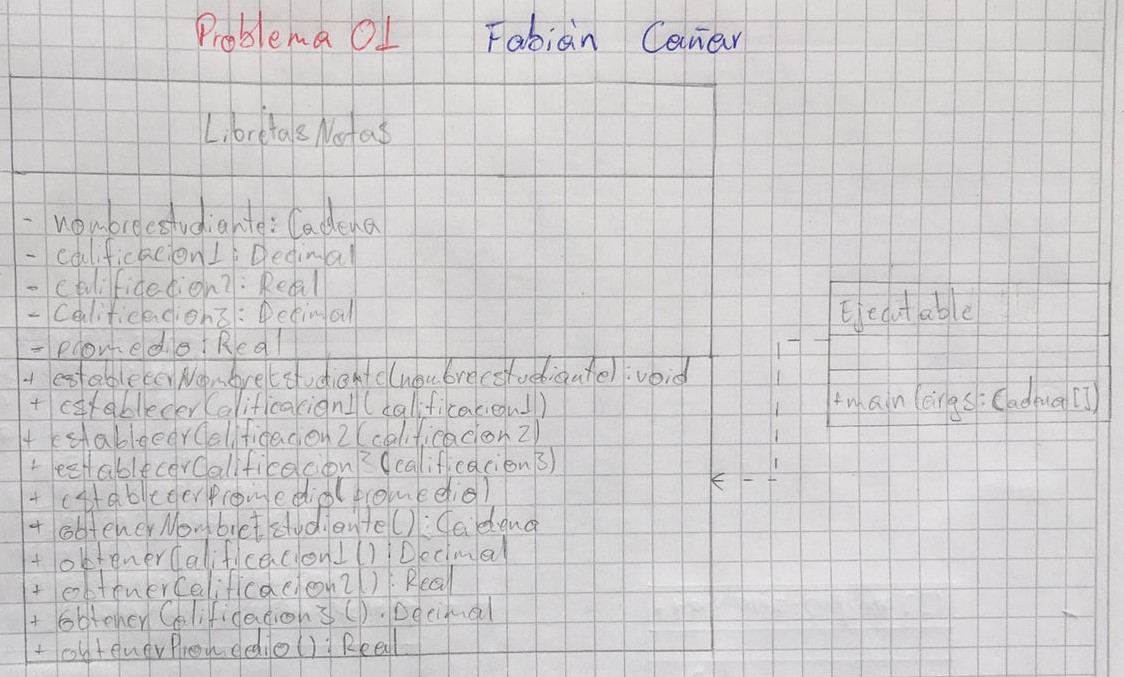 Problema 01 Fabián Cañar
LibretasNotas
- nombreestudiante: Cadena
- calificacion1: Decimal
- calificacion2: Real
- Calificacion3: Decimal
- promedio: Real
+ establecerNombreEstudiante(nombreestudiante): void
+ establecerCalificacion1(calificacion1)
+ establecerCalificacion2(calificacion2)
+ establecerCalificacion3(calificacion3)
+ establecerPromedio(promedio)
+ obtenerNombreEstudiante(): Cadena
+ obtenerCalificacion1(): Decimal
+ obtenerCalificacion2(): Real
+ obtenerCalificacion3(): Decimal
+ obtenerPromedio(): Real
Ejecutable
+main(args: Cadena[])